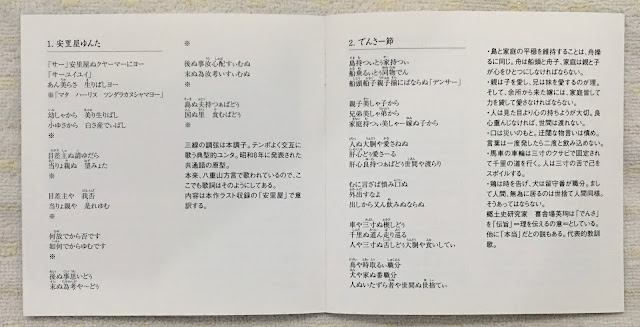 1. 安里屋ゆんた
「サー」安里屋ぬクヤーマーにヨー
「サーユイユイ」
あん美らさ　生りばしヨー
※「マタ　ハーリヌ　ツンダラカヌシャマヨー」
幼しゃから　美り生りばし
小ゆさから　白さ産でぃばし
※
目差主ぬ請ゆだら
当りょ親ぬ　望みょた
※
目差主や　我否
当りょ親や　是れゆむ
※
何故でから否です
如何でからゆむです
※
後ぬ事思いどぅ
末ぬ為考や～どぅ
※
後ぬ事ぬ心配すぃむぬ
末ぬ為ぬ考いすぃむぬ
※
島ぬ夫持つぁばどぅ
国ぬ里　食むばどぅ
※
三線の調弦は本調子。テンポよく交互に
歌う典型的ユンタ。昭和8年に発表された
共通語の原型。
本来、八重山方言で歌われているので、こ
こでも歌詞はそのようにしてある。
内容は本作ラスト収録の「安里屋」で意
訳する。
2. でんさー節
島持つぃとぅ家持つぃ
船乗るぃとぅ同物でん
船頭船子親子揃にばならぬ「デンサー」
親子美しゃ子から
兄弟美しゃ弟から
家庭持つぃ美しゃー嫁ぬ子から
人ぬ大胴や愛さねぬ
肝心どぅ愛さる
肝心良持つぁばどぅ世間や渡らり
むに言ざば慎み口ぬ
外出すなよ
出しから又ん飲みぬならぬ
車や三寸ぬ楔しどぅ
千里ぬ道ん走り巡る
人や三寸ぬ舌しどぅ大胴や食いしてぃ
鳥や時取るぃ職分
犬や家ぬ番職分
人ぬいたずら者や世間ぬ徒捨てぃ
・島と家庭の平穏を維持することは、舟操
るに同じ。舟は船頭と舟子、家庭は親と子
が心をひとつにしなければならない。
・親は子を愛し、兄は妹を愛するのが理。
そして、余所から来た嫁には、家庭皆して
力を貸して愛さなければならない。
・人は見た目より心の持ちようが大切。良
心重んじなければ、世間は渡れない。
・口は災いのもと。迂闊な物言いは慎め。
言葉は一度発したら二度と飲み込めない。
・馬車の車輪は三寸のクサビで固定され
て千里の道を行く。人は三寸の舌で己を
スポイルする。
・鶏は時を告げ、犬は留守番が職分。まし
て人間、無為に居るのはけっして人間同様。
そうあってはならない。
郷土史研究家　喜舎場英珣は「でんさ」
を「伝旨」＝理を伝えるの意＝としている。
他に「本当だ」との説もある。代表的教訓
歌。